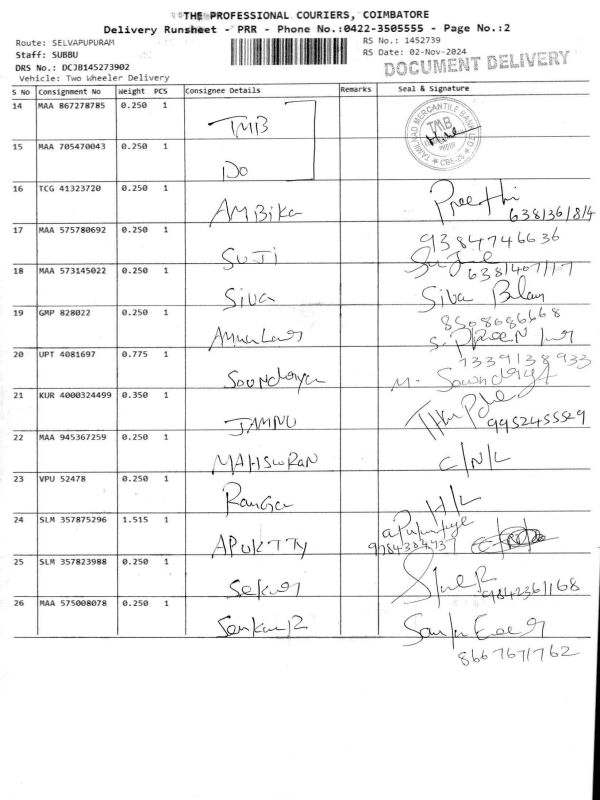 THE PROFESSIONAL COURIERS, COIMBATORE
Delivery Runsheet - PRR - Phone No.:0422-3505555 - Page No.:2
Route: SELVAPUPURAM
RS No.: 1452739
Staff: SUBBU
RS Date: 02-Nov-2024
DRS No.: DCJB145273902
DOCUMENT DELIVERY
Vehicle: Two Wheeler Delivery
S No Consignment No Weight PCS Consignee Details Remarks Seal & Signature
14 MAA 867278785 0.250 1 TMB
TAMILNAD MERCANTILE BANK LTD
TMB
15 MAA 705470043 0.250 1 DO
16 TCG 41323720 0.250 1 AMBika Preethi
17 MAA 575780692 0.250 1 SUJI 9384746636
18 MAA 573145022 0.250 1 Siva Siva Balan
19 GMP 828022 0.250 1
8508686668
20 UPT 4081697 0.775 1 Soundarya M. Soundarya
7339138933
21 KUR 4000324499 0.350 1 JAMNU
9952455529
22 MAA 945367259 0.250 1 MAHSWRAN C/N/L
23 VPU 52478 0.250 1 Ranga H/L
24 SLM 357875296 1.515 1 APUKTTY
25 SLM 357823988 0.250 1 Sekar
9842361168
26 MAA 575008078 0.250 1 SankaR
8667671762